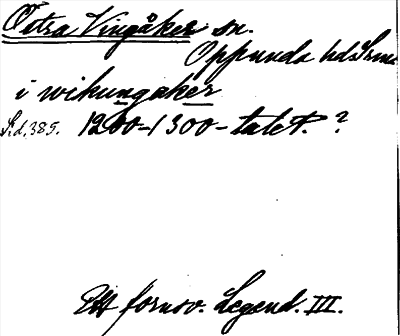 Östra Vingåker sn.
Oppunda hd. Srml.
i wikungaker
S.d. 385. 1200-1300-talet. ?
Ett fornsv. Legend. III.